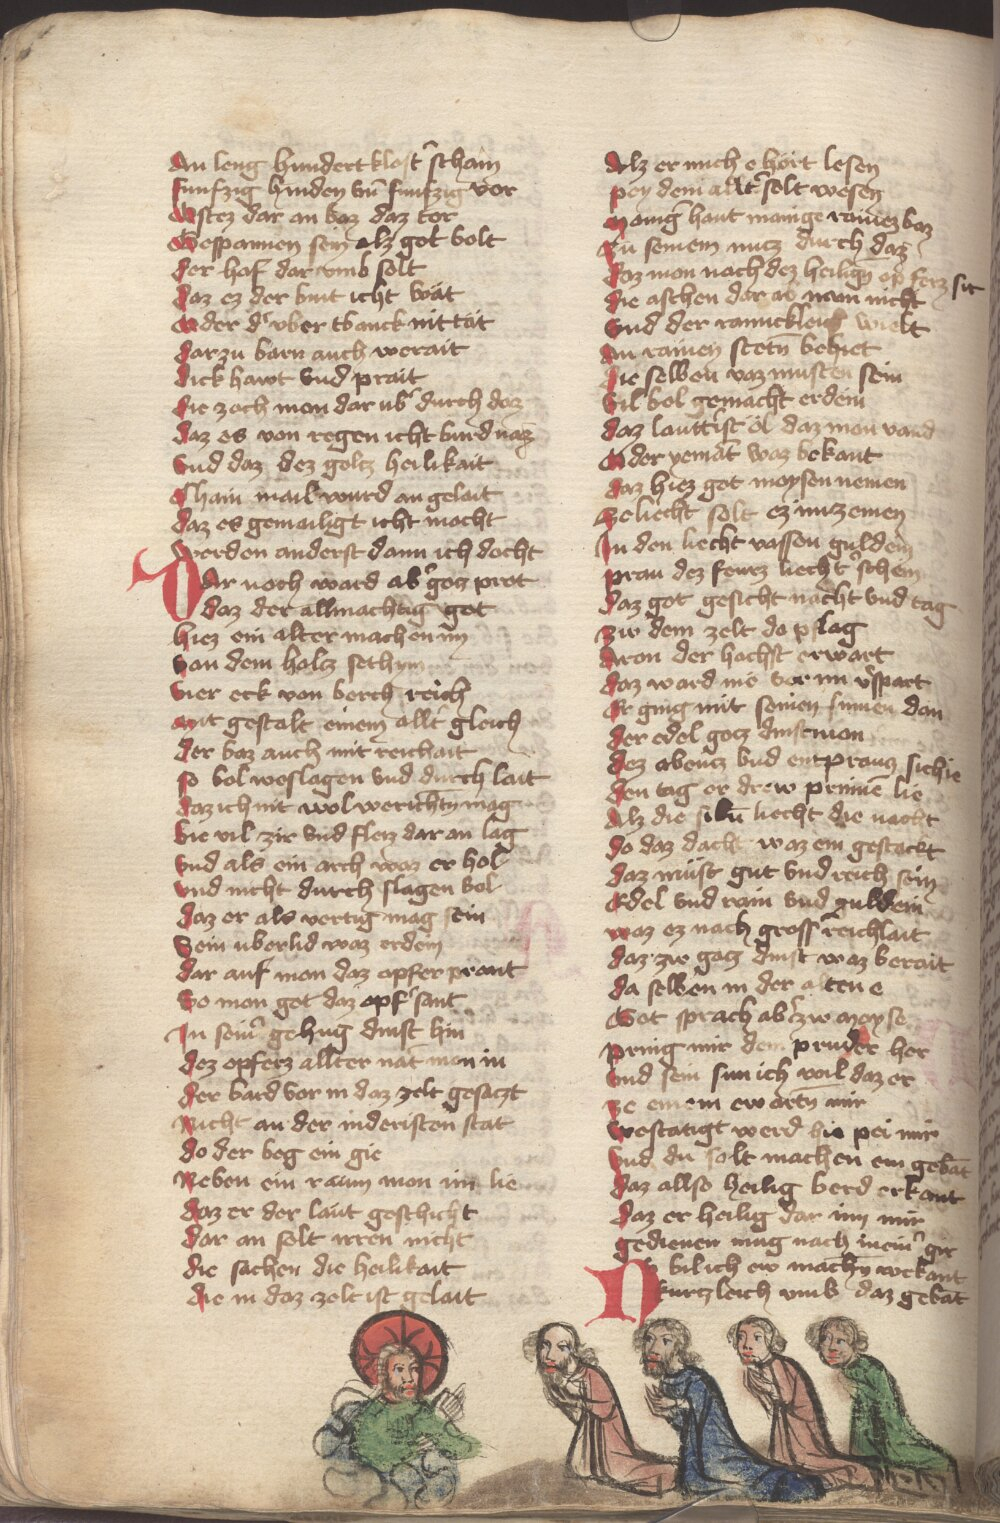 An leng hundert klaft' schain
funfzig hinden vn̄ funfzig vor
Vestez dar an waz daz tor
Gespannen sein alz got wolt
der haf dar vmb solt
daz ez der wint icht wät
Oder d' vber twanck nit tät
dar zu warn auch werait
dick hawt vnd prait
die zoch mon dar ub' durch daz
daz es von regen icht wurd naz
vnd daz dez goltz heilikait
chain mail wurd an gelait
daz es gemailigt icht mocht
werden anderst dann ich docht
Dar noch ward ab' gotz prot
daz der allmachtig got
hiez ein alter machen im
von dem holtz sethym
vier eck von werch reich
mit gestalt einem allt' gleich
der waz auch mit reichait
so wol weslagen vnd durch lait
daz ich nit wol werichtn mag
wie vil zir vnd fleiz dar an lag
vnd als ein arch waz er hol
vnd nicht durch slagen wol
daz er als vertig mag sein
Sein uberlid waz erdein
dar auf mon daz opfer prant
So mon got daz opf' sant
In sein' gehug dinst hin
dez opferz allter nāt mon in
der ward vor in daz zelt gesatzt
Nicht an der inderisten stat
do der weg ein gie
Neben ein raum mon im lie
daz er der laut geschicht
dar an solt irren nicht
die sachen die heilikait
die in daz zelt ist gelait
Alz er mich e hort lesen
pey dem allt' solt wesen
Manig hant mainge rainez vaz
zu seinem nutz durch daz
daz mon nach dez heilign opferz sit
die aschen dar ab nam nicht
vnd der ranuckleng wielt
An rainen stetn behiet
die selben vaz musten sein
vil wol gemacht erdein
daz lauttrist öl daz mon vand
Oder yemāt waz bekant
daz hiez got moysen nemen
ze liecht solt ez im zemen
In den liecht vassen guldein
pran dez fewrz liecht' schein
daz got gesicht nacht vnd tag
zw dem zelt do pflag
Aron der hochst erwart
daz ward nie vor im v'spart
Er ging mit seinen sunen dan
der edel gotz dinstmon
dez abentz vnd entprantz sich ie
den tag er drew prinnē lie
Alz die sibn̄ liecht die nacht
do daz dacht waz ein gesteckt
daz müst gut vnd reich sein
Edel vnd rain vnd guldein
waz ez nach gross' reichait
daz zw gotz dinst waz berait
da selben in der alten e
Got sprach ab' zw moyse
pring mir den pruder her
vnd sein sun ich wil daz er
ze einem ewartn mir
westatigt werd hie pei mir
vnd du solt machen ein gebāt
daz allso heilig werd erkant
daz er heilig dar inn mir
gedienen mug nach mein' gir
Nu wil ich ew machn wekant
kurtzleich vmb daz gebāt